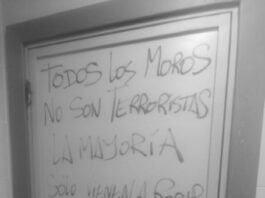 TODOS LOS MOROS
NO SON TERRORISTAS
LA MAYORÍA
SÓLO VIENEN A